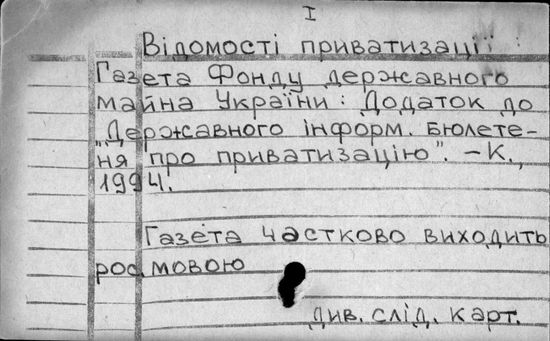 I
Відомості приватизації :
Газета Фонду державного
майна України : Додаток до
"Державного інформ. бюлете-
ня про приватизацію". – К.,
1994.
Газета частково виходить
рос. мовою
див. слід. карт.